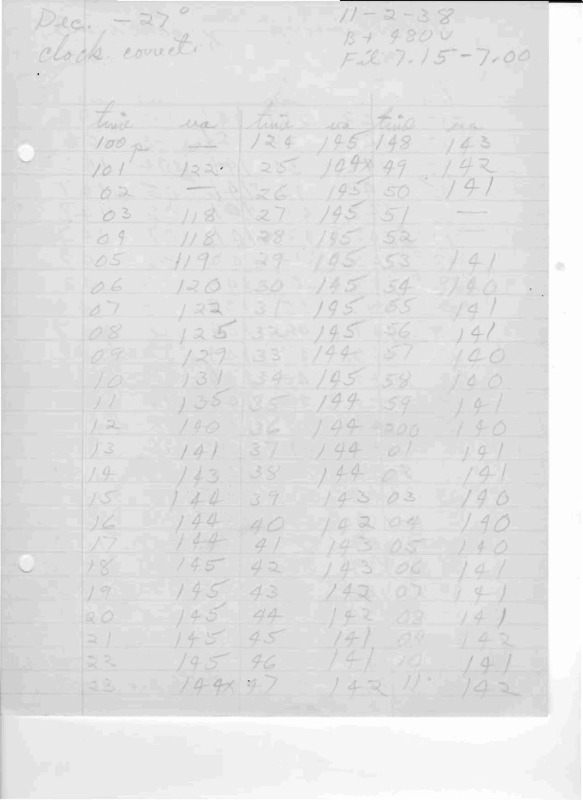 Dec. -27° 11-2-38
clock correct. B+ 480V
Fil 7.15-7.00
time ua time ua time ua
100p — 124 145 148 143
101 122 25 144x 49 142
02 — 26 145 50 141
03 118 27 145 51 —
04 118 28 145 52
05 119 29 145 53 141
06 120 30 145 54 140
07 122 31 145 55 141
08 125 32 145 56 141
09 129 33 144 57 140
10 131 34 145 58 140
11 135 35 144 59 141
12 140 36 144 200 140
13 141 37 144 01 141
14 143 38 144 02 141
15 144 39 143 03 140
16 144 40 142 04 140
17 144 41 143 05 140
18 145 42 143 06 141
19 145 43 142 07 141
20 145 44 142 08 141
21 145 45 141 09 142
22 145 46 141 10 141
23 144x 47 142 11 142